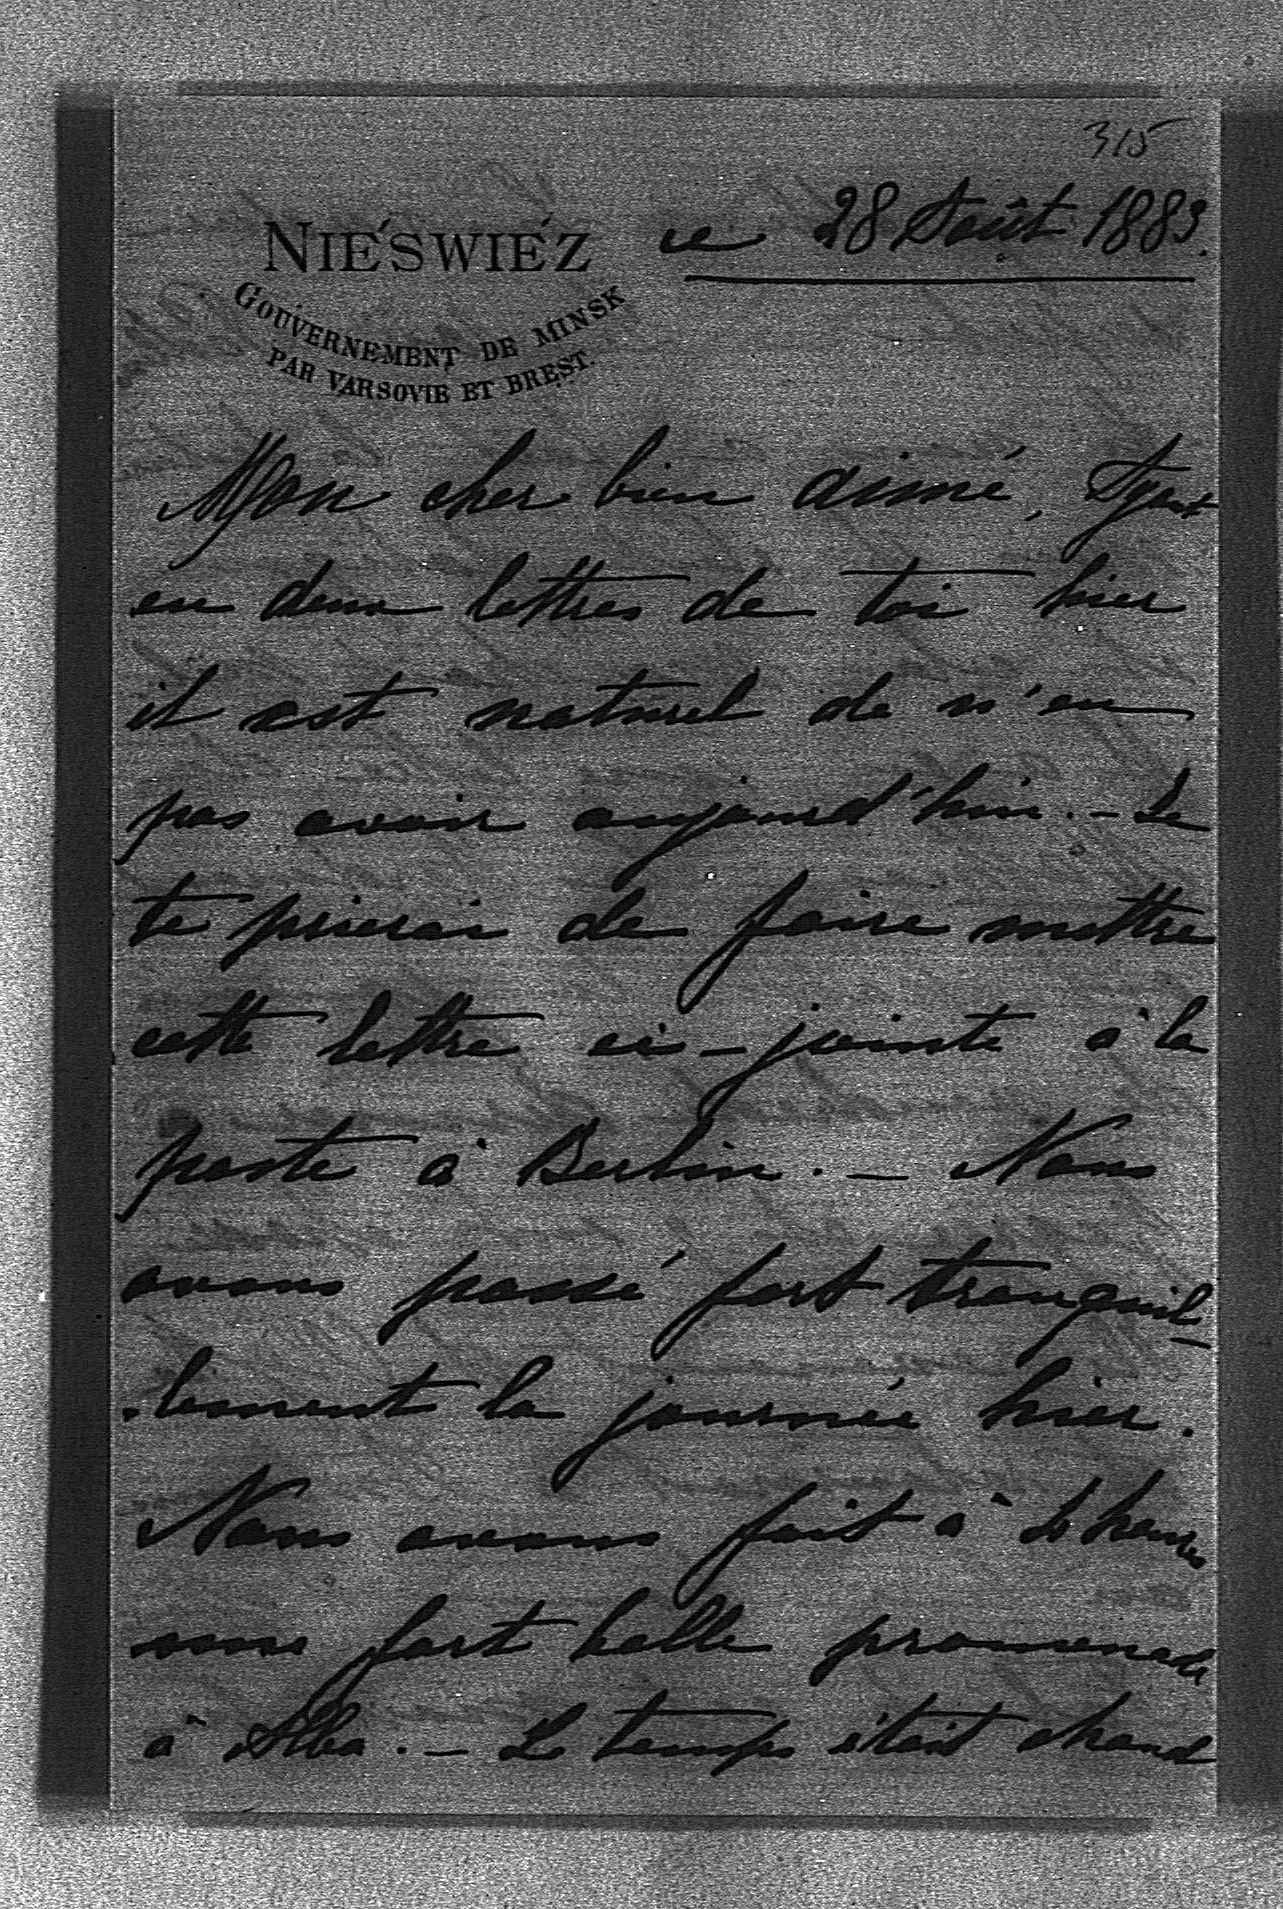 315
NIÉŚWIÉZ ce 28 Août 1883.
GOUVERNEMENT DE MINSK
PAR VARSOVIE ET BREST.
Mon cher bien aimé, Ayant
eu deux lettres de toi hier
il est naturel de n'en
pas avoir aujourd'hui. – Je
te prierai de faire mettre
cette lettre ci-jointe à la
poste à Berlin. – Nous
avons passé fort tranquil-
lement la journée hier.
Nous avons fait à heures
une fort belle promenade
à Alba. – Le temps était chaud